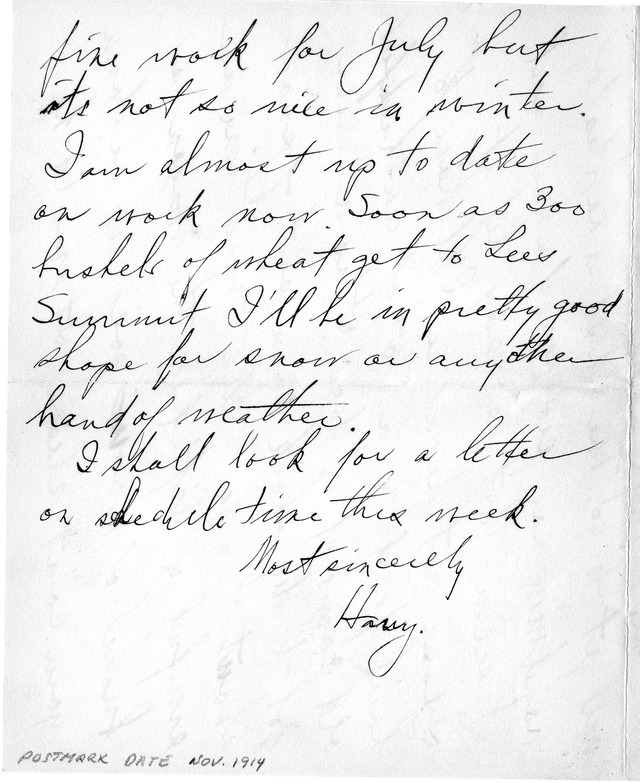 fine work for July but
its not so nice in winter.
I am almost up to date
on work now. Soon as 300
bushels of wheat get to Lees
Summit I'll be in pretty good
shape for snow or any other
hand of weather.
I shall look for a letter
on schedule time this week.
Most sincerely
Harry.
POSTMARK DATE NOV. 1914